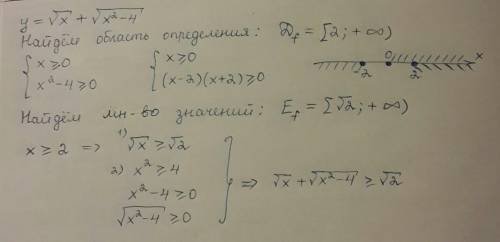 y = √x + √(x²-4)
Найдём область определения: D_f = [2; +∞)
{ x ≥ 0 { x ≥ 0
{ x²-4 ≥ 0 { (x-2)(x+2) ≥ 0
-2 0 2 x
Найдём мн-во значений: E_f = [√2; +∞)
x ≥ 2 => 1) √x ≥ √2
2) x² ≥ 4
x²-4 ≥ 0
√(x²-4) ≥ 0 } => √x + √(x²-4) ≥ √2